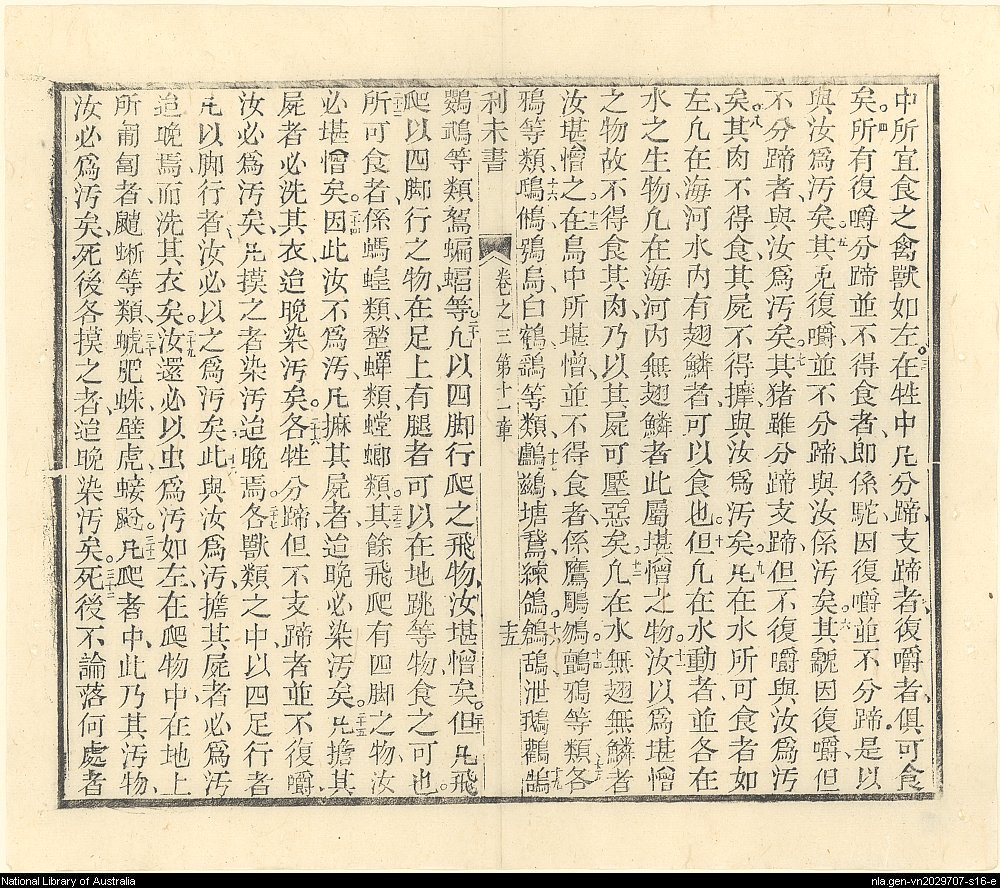 中所宜食之禽獸如左。三在牲中、凡分蹄支蹄者、復嚼者、俱可食
矣。四所有復嚼分蹄、並不得食者、即係駝因復嚼並不分蹄、是以
與汝爲汚矣。五其兎復嚼、並不分蹄、與汝係汚矣。六其因復嚼、但
不分蹄者、與汝爲汚矣。七其猪雖分蹄支蹄、但不復嚼、與汝爲汚
矣。八其肉不得食、其屍不得摩、與汝爲汚矣。九凡在水所可食者、如
左、凡在海河水內、有翅鱗者、可以食也。十但凡在水動者、並各在
水之生物、凡在海河內、無翅鱗者、此屬堪憎之物。十一汝以爲堪憎
之物、故不得食其肉、乃以其屍可壓惡矣。十二凡在水無翅無鱗者、
汝堪憎之。十三在鳥中所堪憎、並不得食者、係鷹鵰、十四鸇鴉等類、十五各
鴉等類、十六鴟鵂鶚鳥白鶴鷂等類、十七鸕鷀塘鵞、十八鵠泄鵝鸛鵠、十九
利未書 卷之三 第十一章 十五
鸚鵡等類、鴽蝙蝠等。二十凡以四脚行爬之飛物、汝堪憎矣。二十一但凡飛
爬以四脚行之物、在足上有腿者、可以在地跳等物、食之可也。
二十二所可食者、係螞蝗類、蟬類、螳螂類。二十三其餘飛爬有四脚之物、汝
必堪憎矣。二十四因此汝不爲汚、凡摩其屍者、迨晚必染汚矣。二十五凡擔其
屍者、必洗其衣、迨晚染汚矣。二十六各牲分蹄、但不支蹄者、並不復嚼、
汝必爲汚矣、凡摸之者、染汚迨晚焉。二十七各獸類之中、以四足行者、
凡以脚行者、汝必以之爲汚矣、此與汝爲汚、二十八擔其屍者、必爲汚
迨晚焉、而洗其衣矣。二十九汝還必以虫爲汚、如左、在爬物中、在地上
所匍匐者、蜥等類、三十蚾肥蛛壁虎。三十一凡爬者中、此乃其汚物、
汝必爲汚矣、死後各摸之者、迨晚染汚矣。三十二死後不論落何處者
National Library of Australia
nla.gen-vn2029707-s16-e